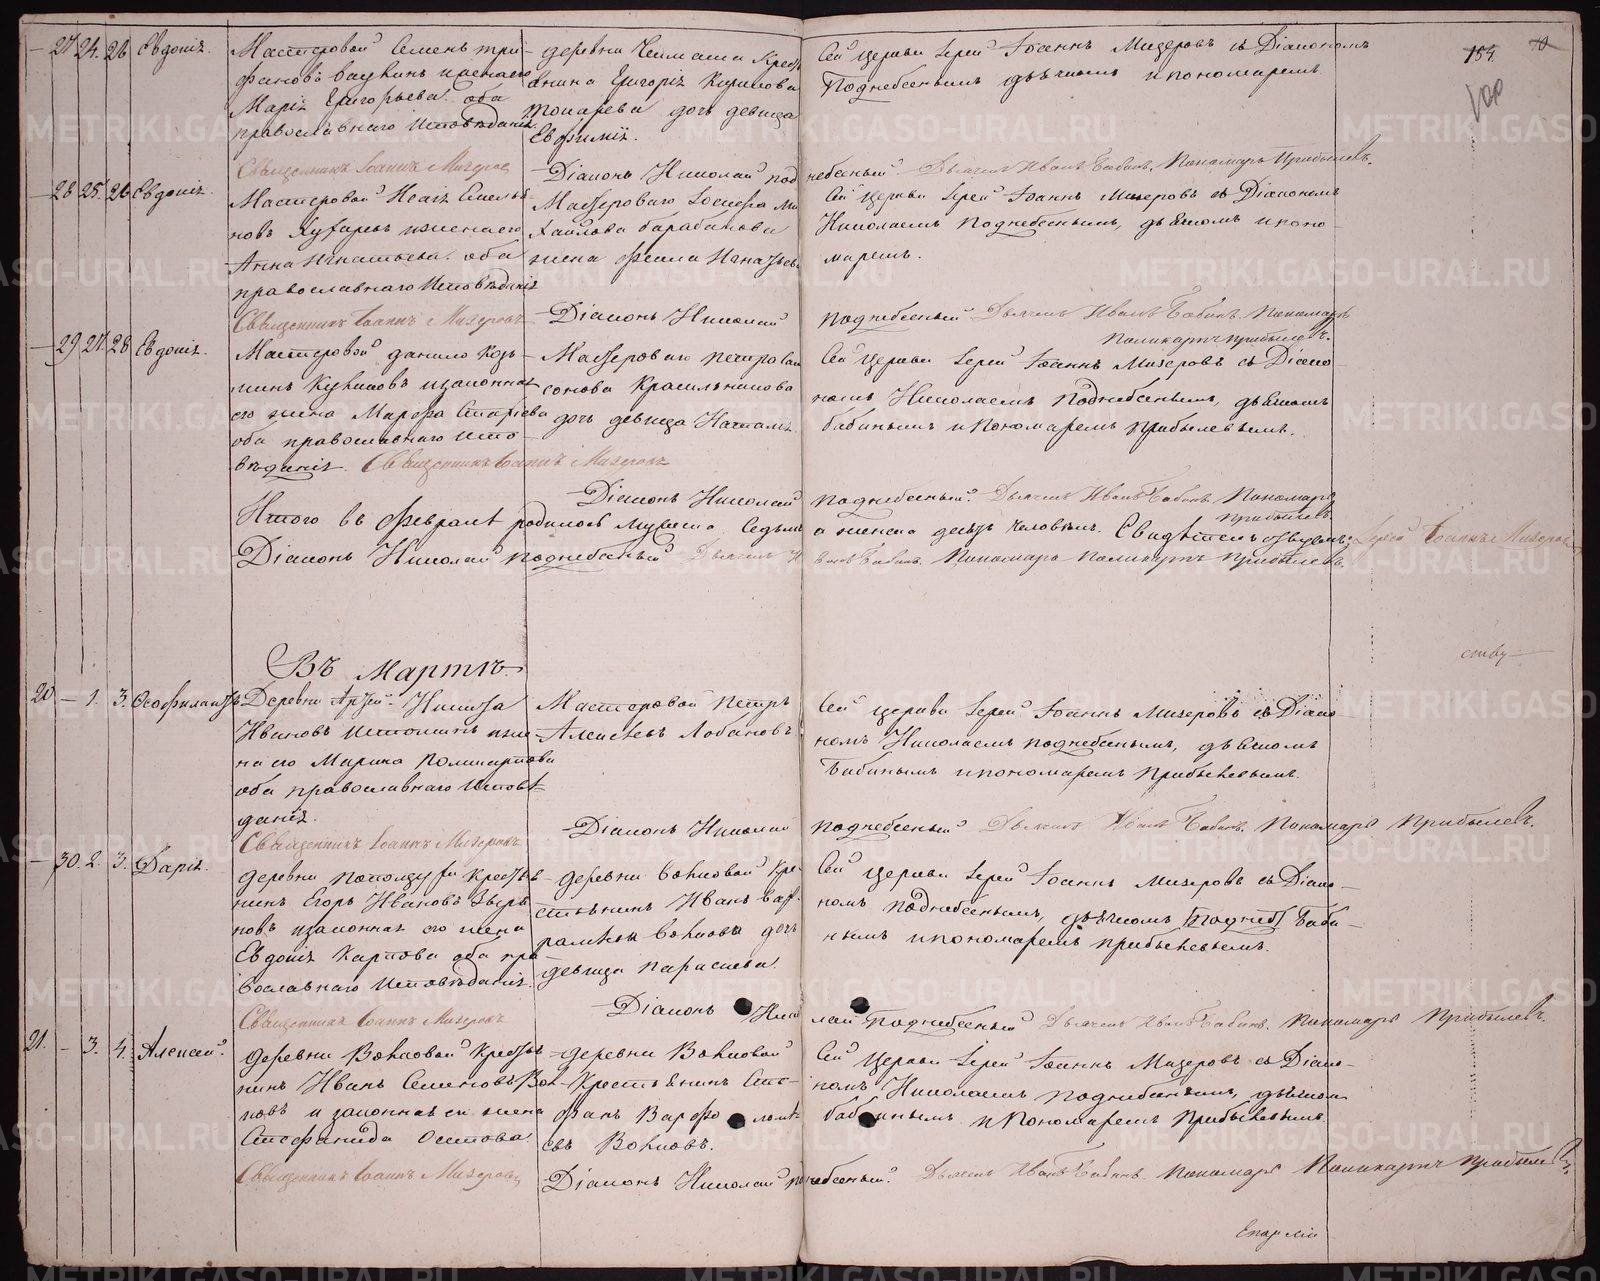 154.
— 27 24. 26 Евдокiя.
Мастеровой Семенъ Три-
фановъ
Марiя Григорьева. оба
православнаго Исповѣданiя
деревни
Григорiя Кирилова
Токарева дочь девица
Евфимiя.
Сей церкви Iерей Iоаннъ Мизеровъ съ Дiакономъ
Поднебеснымъ дьячкомъ и пономаремъ.
Священникъ Iоаннъ Мизеровъ
Дiаконъ Николай Поднебесный. Дьячекъ Иванъ Бабинъ. Пономарь Прибылевъ.
— 28 25. 26 Евдокiя.
Мастеровой Исаiя Емелья
новъ
Анна Игнатьева. оба
православнаго Исповѣданiя
Мастероваго Iосифа Ми
хаилова Барабанова
жена Фекла Игнатьева
Сей церкви Iерей Iоаннъ Мизеровъ съ Дiакономъ
Николаемъ Поднебеснымъ, дьячкомъ и поно-
маремъ.
Священникъ Iоаннъ Мизеровъ
Дiаконъ Николай Поднебесный Дьячекъ Иванъ Бабинъ. Пономарь
Поликарпъ Прибылевъ.
— 29 27. 28 Евдокiя.
Мастеровой Данило Козь-
минъ Куклиновъ и законная
его жена Марфа
оба православнаго Испо-
вѣданiя. Священникъ Iоаннъ Мизеровъ
Мастероваго Петра
Красильникова
дочь девица Наталья
Сей церкви Iерей Iоаннъ Мизеровъ съ Дiако-
номъ Николаемъ Поднебеснымъ, дьячкомъ
Бабинымъ и Пономаремъ Прибылевымъ.
Дiаконъ Николай Поднебесный. Дьячекъ Иванъ Бабинъ. Пономарь
Прибылевъ
Итого въ Февралѣ родилось мужеска седмь а женска десять человѣкъ. Iерей Iоаннъ Мизеровъ
Дiаконъ Николай Поднебесный Дьячекъ Иванъ Бабинъ. Пономарь Поликарпъ Прибылевъ
Въ Мартѣ.
20 — 1. 3. Феофилактъ
Деревни Никита
Ивановъ Истоминъ и же-
на его Марина Поликарпова
оба православнаго Исповѣ-
данiя.
Мастеровой Петръ
Алексѣевъ Лобановъ
Сей церкви Iерей Iоаннъ Мизеровъ съ Дiако-
номъ Николаемъ Поднебеснымъ, дьячкомъ
Бабинымъ и пономаремъ Прибылевымъ.
Священникъ Iоаннъ Мизеровъ
Дiаконъ Николай Поднебесный Дьячекъ Иванъ Бабинъ. Пономарь Прибылевъ.
— 30. 2. 3. Дарiя.
деревни Крестья-
нинъ Егоръ Ивановъ Звѣре
новъ и законная его жена
Евдокiя Карпова оба пра-
вославнаго Исповѣданiя.
деревни Волковой Кре-
стьянинъ Иванъ Вар-
Волкова дочь
девица Параскева.
Сей церкви Iерей Iоаннъ Мизеровъ съ Дiако-
номъ Поднебеснымъ, дьячкомъ [Поднеб] Баби-
нымъ и пономаремъ Прибылевымъ.
Священникъ Iоаннъ Мизеровъ
Дiаконъ Николай Поднебесный Дьячекъ Иванъ Бабинъ. Пономарь Прибылевъ.
21. — 3. 4. Алексей.
деревни Волковой Крестья-
нинъ Иванъ Семеновъ Вол-
ковъ и законная его жена
Стефанида Осипова
деревни Волковой
Крестьянинъ Сте-
фанъ Варфоломѣ-
евъ Волковъ.
Сей церкви Iерей Iоаннъ Мизеровъ съ Дiако-
номъ Николаемъ Поднебеснымъ, дьячкомъ
Бабинымъ и Пономаремъ Прибылевымъ
Священникъ Iоаннъ Мизеровъ
Дiаконъ Николай Поднебесный. Дьячекъ Иванъ Бабинъ. Пономарь Поликарпъ Прибылевъ
Епархiи
METRIKI.GASO-URAL.RU